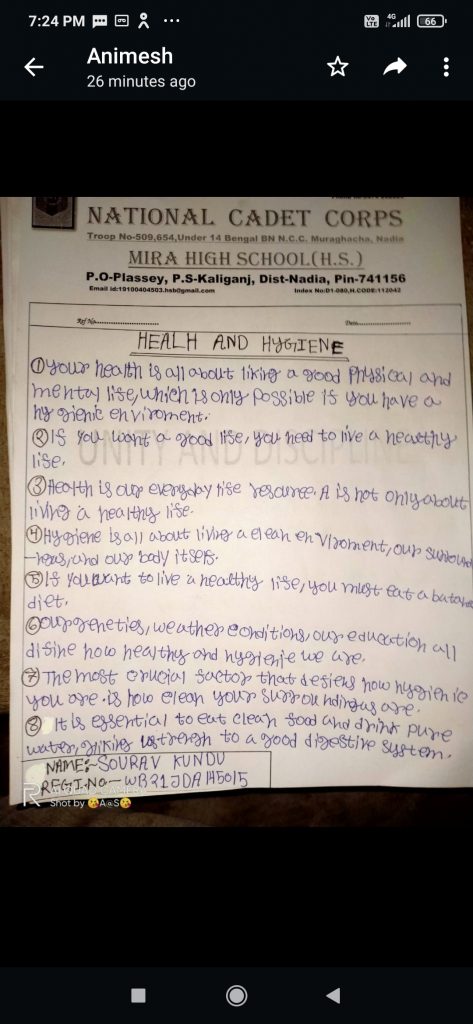 7:24 PM
Vo LTE 4G 66
Animesh
26 minutes ago
NATIONAL CADET CORPS
Troop No-509,654,Under 14 Bengal BN N.C.C. Muraghacha, Nadia
MIRA HIGH SCHOOL(H.S.)
P.O-Plassey, P.S-Kaliganj, Dist-Nadia, Pin-741156
Email id:19100404503.hsb@gmail.com Index No:D1-080,H.CODE:112042
Ref No. Date
HEALH AND HYGIENE
① Your health is all about liking a good Physical and
mental life, which is only Possible if you have a
hygienic enviroment.
② If you want a good life, you need to live a healthy
life.
UNITY AND DISCIPLINE
③ Health is our everyday life resource. A is not only about
living a healthy life.
④ Hygiene is all about living a clean enviroment, our surround
-heus, and our body itself.
⑤ If you want to live a healthy life, you must eat a
diet.
⑥ Our genetics, weather conditions, our education all
difine how healthy and hygienie we are.
⑦ The most crucial factor that defiens how hygienic
you are is how clean your surroundings are.
⑧ It is essential to eat clean food and drink pure
water, to a good digestive system.
NAME:-SOURAV KUNDU
REGI.NO-WB21JDA145015
R
Shot by 😘A@S😘